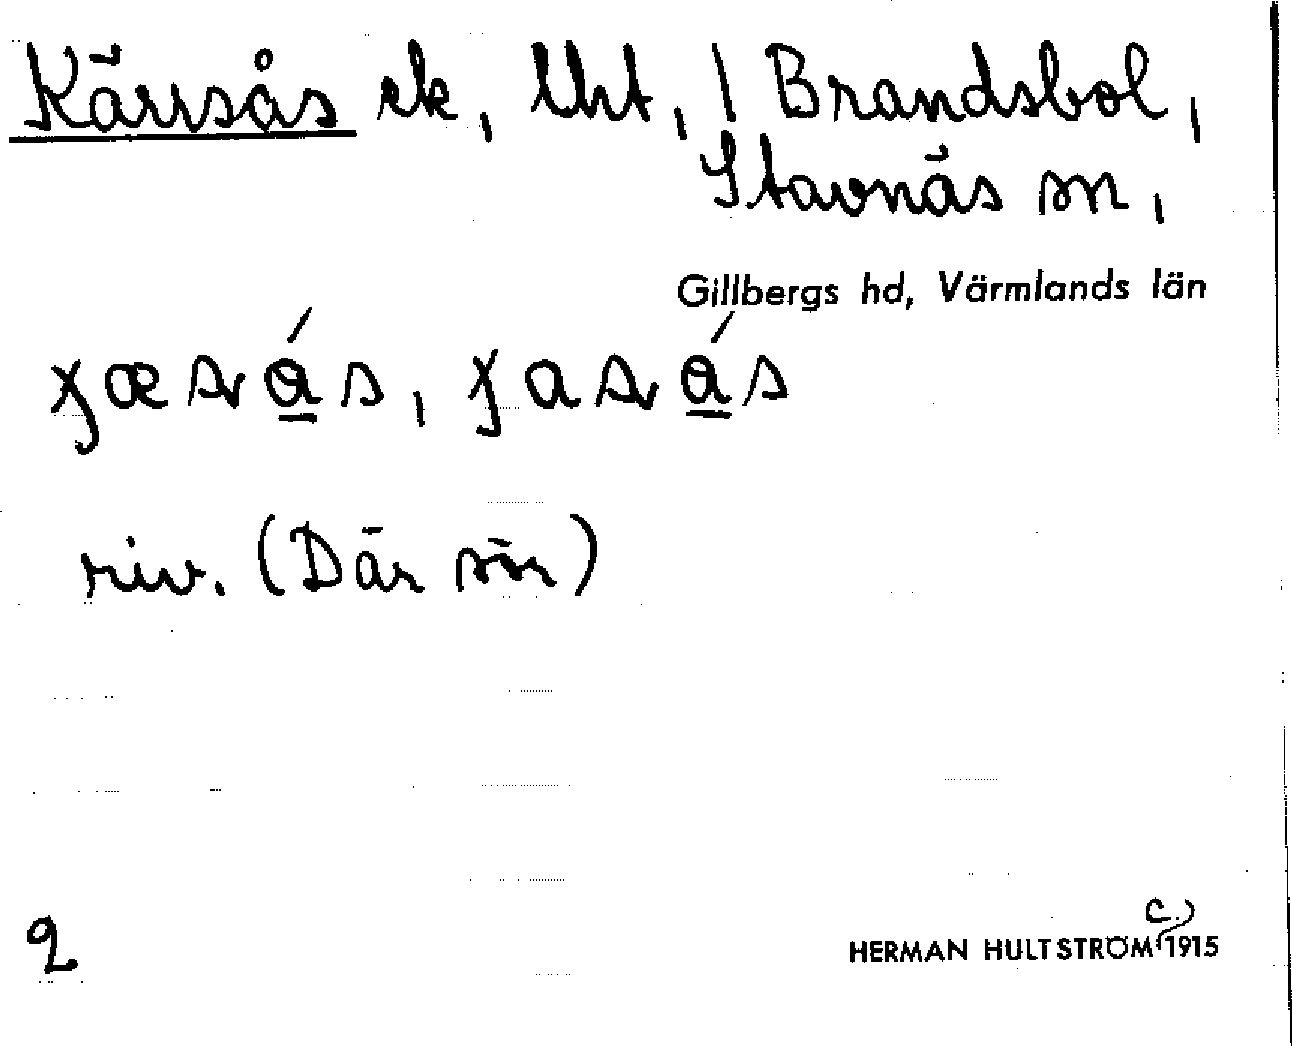 Kärrsås ek, lht, / Brandsbol,
Stavnäs sn,
Gillbergs hd, Värmlands län
riv. (Där sön)
2
HERMAN HULTSTRÖM c.) 1915